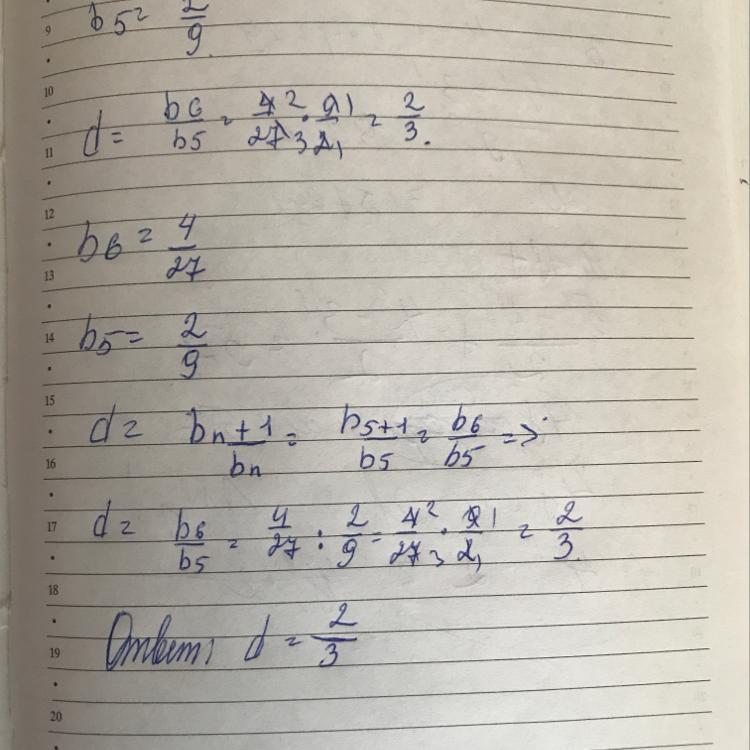 b5 = 2/9
9
10
d = b6/b5 = 4²/27₃ · 9¹/2₁ = 2/3.
11
12
b6 = 4/27
13
b5 = 2/9
14
15
d = bn+1/bn = b5+1/b5 = b6/b5 =>
16
d = b6/b5 = 4/27 : 2/9 = 4²/27₃ · 9¹/2₁ = 2/3
17
18
Ответ: d = 2/3
19
20